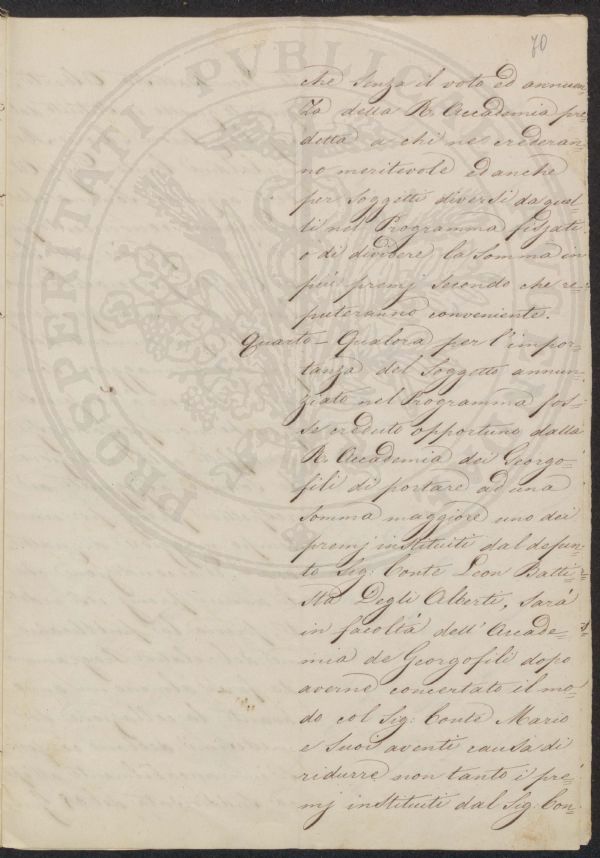 70
che senza il voto ed annuen=
za della R. Accademia pre=
detta a chi ne crederan=
no meritevole ed anche
per soggetti diversi da quel=
li nel Programma fissati
o di dividere la somma in
più premj secondo che re=
puteranno conveniente.
Quarto = Qualora per l'impor=
tanza del Soggetto annun=
ziato nel Programma fos=
se creduto opportuno dalla
R. Accademia dei Georgo=
fili di portare ad una
somma maggiore uno dei
premj instituiti dal defun=
to Sig: Conte Leon Batti=
sta Degli Alberti, sarà
in facoltà dell'Accade=
mia de Georgofili dopo
averne concertato il mo=
do col Sig: Conte Mario
e suoi aventi causa di
ridurre non tanto i pre=
mj instituiti dal Sig. Con=
PROSPERITATI PUBLICAE